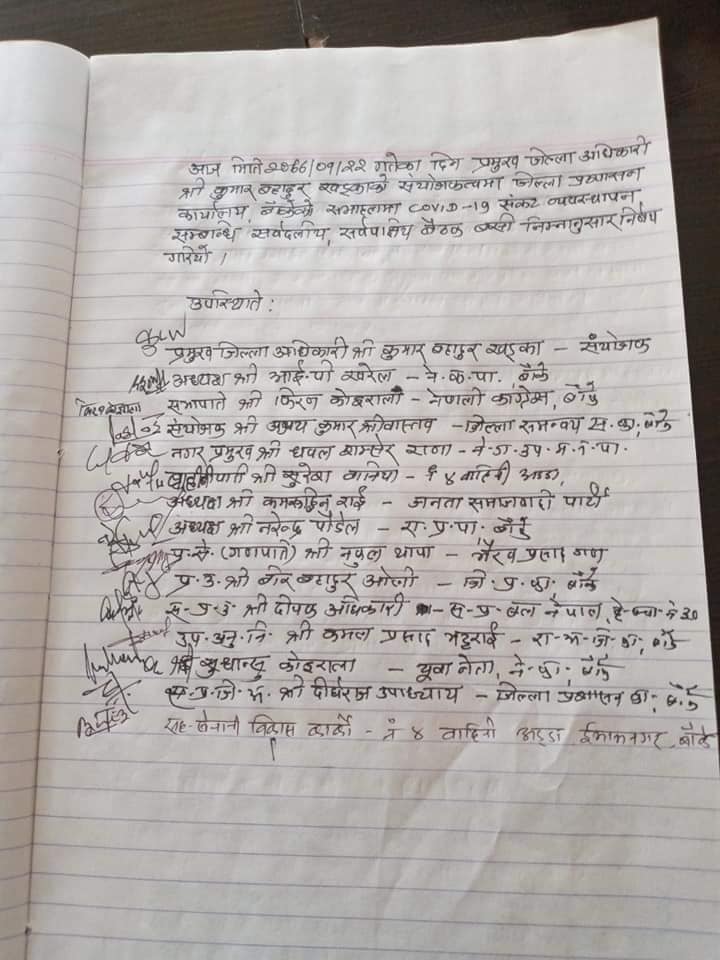 आज मिति २०७७/०१/२२ गतेका दिन प्रमुख जिल्ला अधिकारी
श्री कुमार बहादुर खड्काको संयोजकत्वमा जिल्ला प्रशासन
कार्यालय, बाँकेको सभाहलमा COVID-19 संकट व्यवस्थापन
सम्बन्धि सर्वदलीय, सर्वपक्षिय बैठक बसी निम्नानुसार निर्णय
गरियो ।
उपस्थिति :
प्रमुख जिल्ला अधिकारी श्री कुमार बहादुर खड्का - संयोजक
अध्यक्ष श्री आई.पी खरेल - ने.क.पा. बाँके
सभापति श्री किरण कोइराला - नेपाली काग्रेस, बाँके
संयोजक श्री अजय कुमार श्रीवास्तव - जिल्ला समन्वय स. का. बाँके
नगर प्रमुख श्री धवल शम्सेर राणा - ने.ग.उप.म.न.पा.
श्री सुरेश - नं ४ वाहिनी अड्डा,
अध्यक्ष श्री राई - जनता समाजवादी पार्टी
अध्यक्ष श्री नरेन्द्र पौडेल - रा.प्र.पा. बाँके
प्र.से. (गणपति) श्री नुपल थापा - भैरव प्रसाद गण
प्र.उ. श्री बीर बहादुर ओली - जि.प्र.का. बाँके
स.प्र.उ. श्री दीपक अधिकारी - स.प्र.बल नेपाल, नं 30
उप.अनु.नि. श्री कमल प्रसाद भट्टराई - रा.अ.जि.का, बाँके
श्री सुधान्सु कोइराला - युवा नेता, ने.का. बाँके
स.प्र.जि.अ. श्री दीर्घराज उपाध्याय - जिल्ला प्रशासन का, बाँके
सह-सेनानी विकास कार्की - नं ४ वाहिनी अड्डा ईमामनगर, बाँके